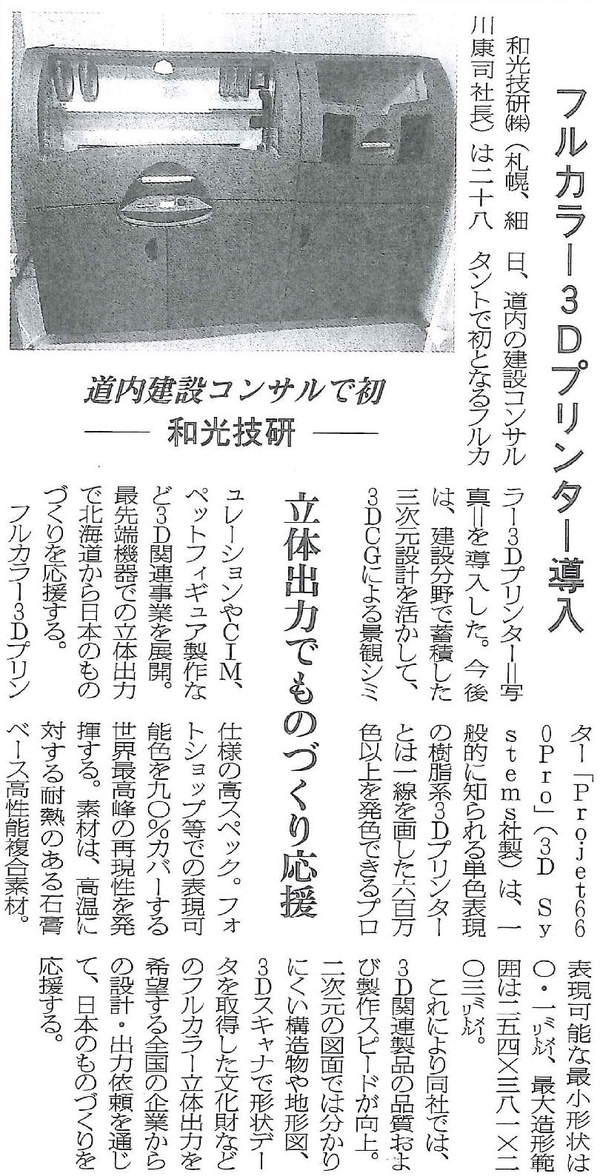 フルカラー3Dプリンター導入
道内建設コンサルで初
和光技研
立体出力でものづくり応援
和光技研㈱（札幌、細
川康司社長）は二十八
日、道内の建設コンサル
タントで初となるフルカ
ラー3Dプリンター＝写
真＝を導入した。今後
は、建設分野で蓄積した
三次元設計を活かして、
3DCGによる景観シミ
ュレーションやCIM、
ペットフィギュア製作な
ど3D関連事業を展開。
最先端機器での立体出力
で北海道から日本のもの
づくりを応援する。
フルカラー3Dプリン
ター「Projet66
0Pro」（3D Sy
stems社製）は、一
般的に知られる単色表現
の樹脂系3Dプリンター
とは一線を画した六百万
色以上を発色できるプロ
仕様の高スペック。フォ
トショップ等での表現可
能色を九〇％カバーする
世界最高峰の再現性を発
揮する。素材は、高温に
対する耐熱のある石膏
ベース高性能複合素材。
表現可能な最小形状は
〇・一㍉㍍、最大造形範
囲は二五四×三八一×二
〇三㍉㍍。
これにより同社では、
3D関連製品の品質およ
び製作スピードが向上。
二次元の図面では分かり
にくい構造物や地形図、
3Dスキャナで形状デー
タを取得した文化財など
のフルカラー立体出力を
希望する全国の企業から
の設計・出力依頼を通じ
て、日本のものづくりを
応援する。